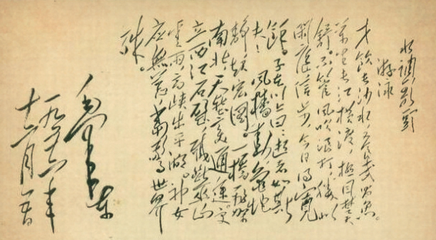 水调歌头
游泳
才飲长沙水又食武昌魚
萬里长江横渡極目楚天
舒不管風吹浪打勝似
闲庭信步今日得宽
餘子在川上曰逝者如斯
夫風樯动龜蛇
静起宏圖一橋飛架
南北天堑变通途更
立西江石壁截断巫山
雲雨高峡出平湖神女
應無恙當驚世界
殊
毛泽东
一九五六年
十二月五日